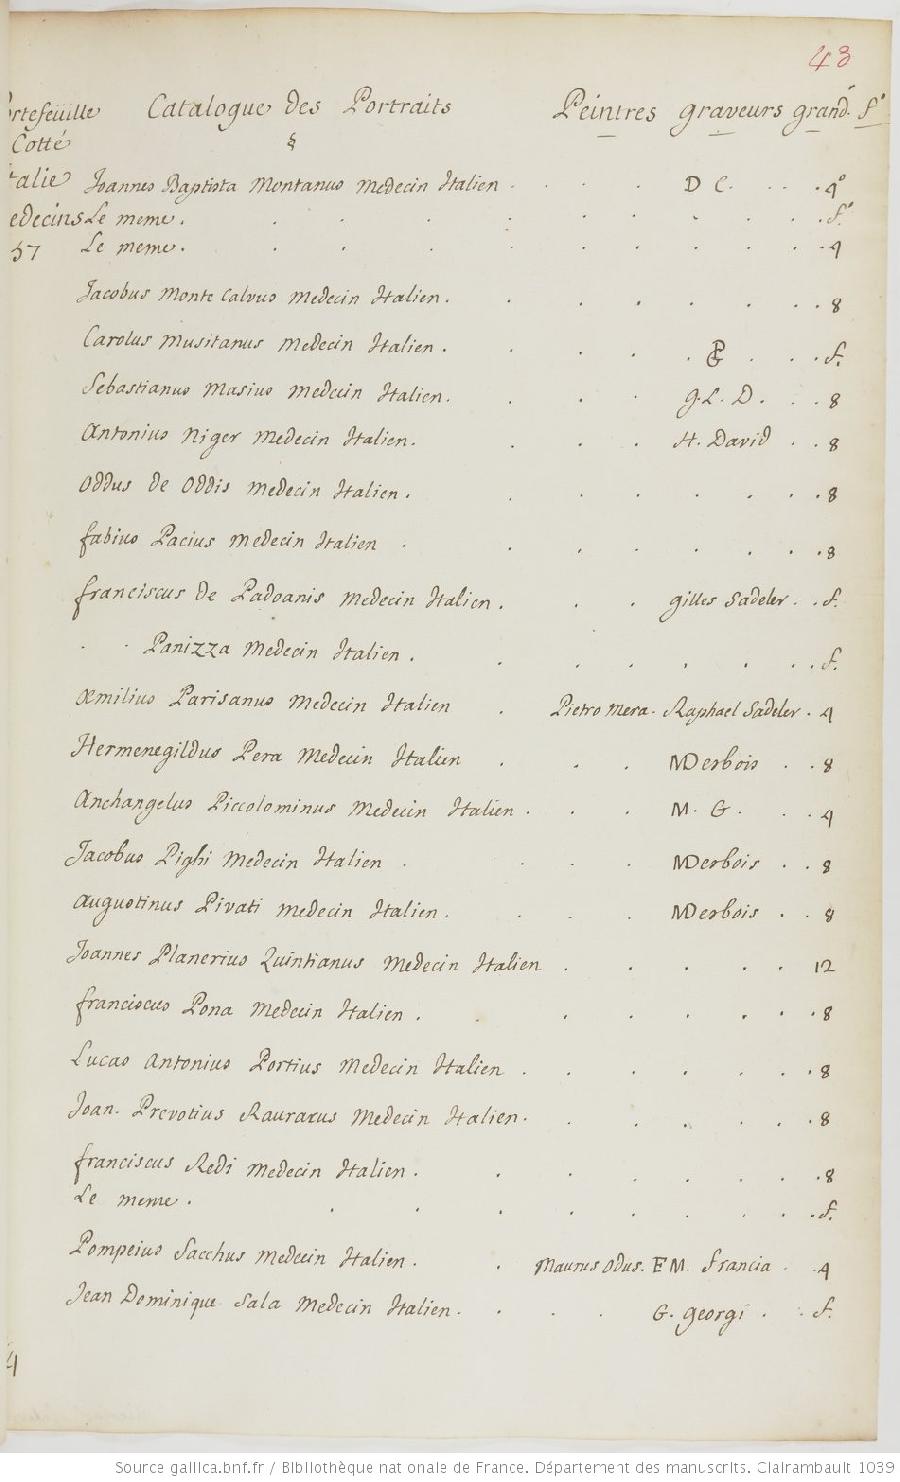 43
ortefeüille Catalogue des Portraits Peintres graveurs grand. fº
Cotté §
talie Joannes Baptista Montanus Medecin Italien . . . . D C. . . . 4º
edecins Le meme. . . . . . . . . . . fº
57 Le meme. . . . . . . . . . . 4
Jacobus Monte Calvus Medecin Italien. . . . . . . . 8
Carolus Musitanus Medecin Italien. . . . . . . . f.
Sebastianus Masius Medecin Italien. . . . G. L. D. . . 8
Antonius Niger Medecin Italien. . . . H. David . . 8
Oddus de Oddis Medecin Italien. . . . . . . . 8
fabius Pacius Medecin Italien . . . . . . . . 8
franciscus de Padoanis Medecin Italien. . . gilles Sadeler . . f.
. . Panizza Medecin Italien. . . . . . . . . f.
Æmilius Parisanus Medecin Italien . Pietro Mera. Raphael Sadeler . 4
Hermenegildus Pera Medecin Italien . . . MDesbois . . 8
Anchangelus Piccolominus Medecin Italien . . . M. G. . . 4
Jacobus Pighi Medecin Italien . . . . MDesbois . . 8
Augustinus Pivati Medecin Italien. . . . MDesbois . . 8
Joannes Planerius Quintianus Medecin Italien . . . . . 12
franciscus Pona Medecin Italien . . . . . . . . 8
Lucas Antonius Portius Medecin Italien . . . . . . . 8
Joan. Prevotius Rauracus Medecin Italien. . . . . . . 8
franciscus Redi Medecin Italien. . . . . . . . 8
Le meme . . . . . . . . . . f.
Pompeius Sacchus Medecin Italien. . Maurus Odus. F M. Francia . 4
Jean Dominique Sala Medecin Italien. . . . G. georgi . . f.
4
Source gallica.bnf.fr / Bibliothèque nationale de France. Département des manuscrits. Clairambault 1039